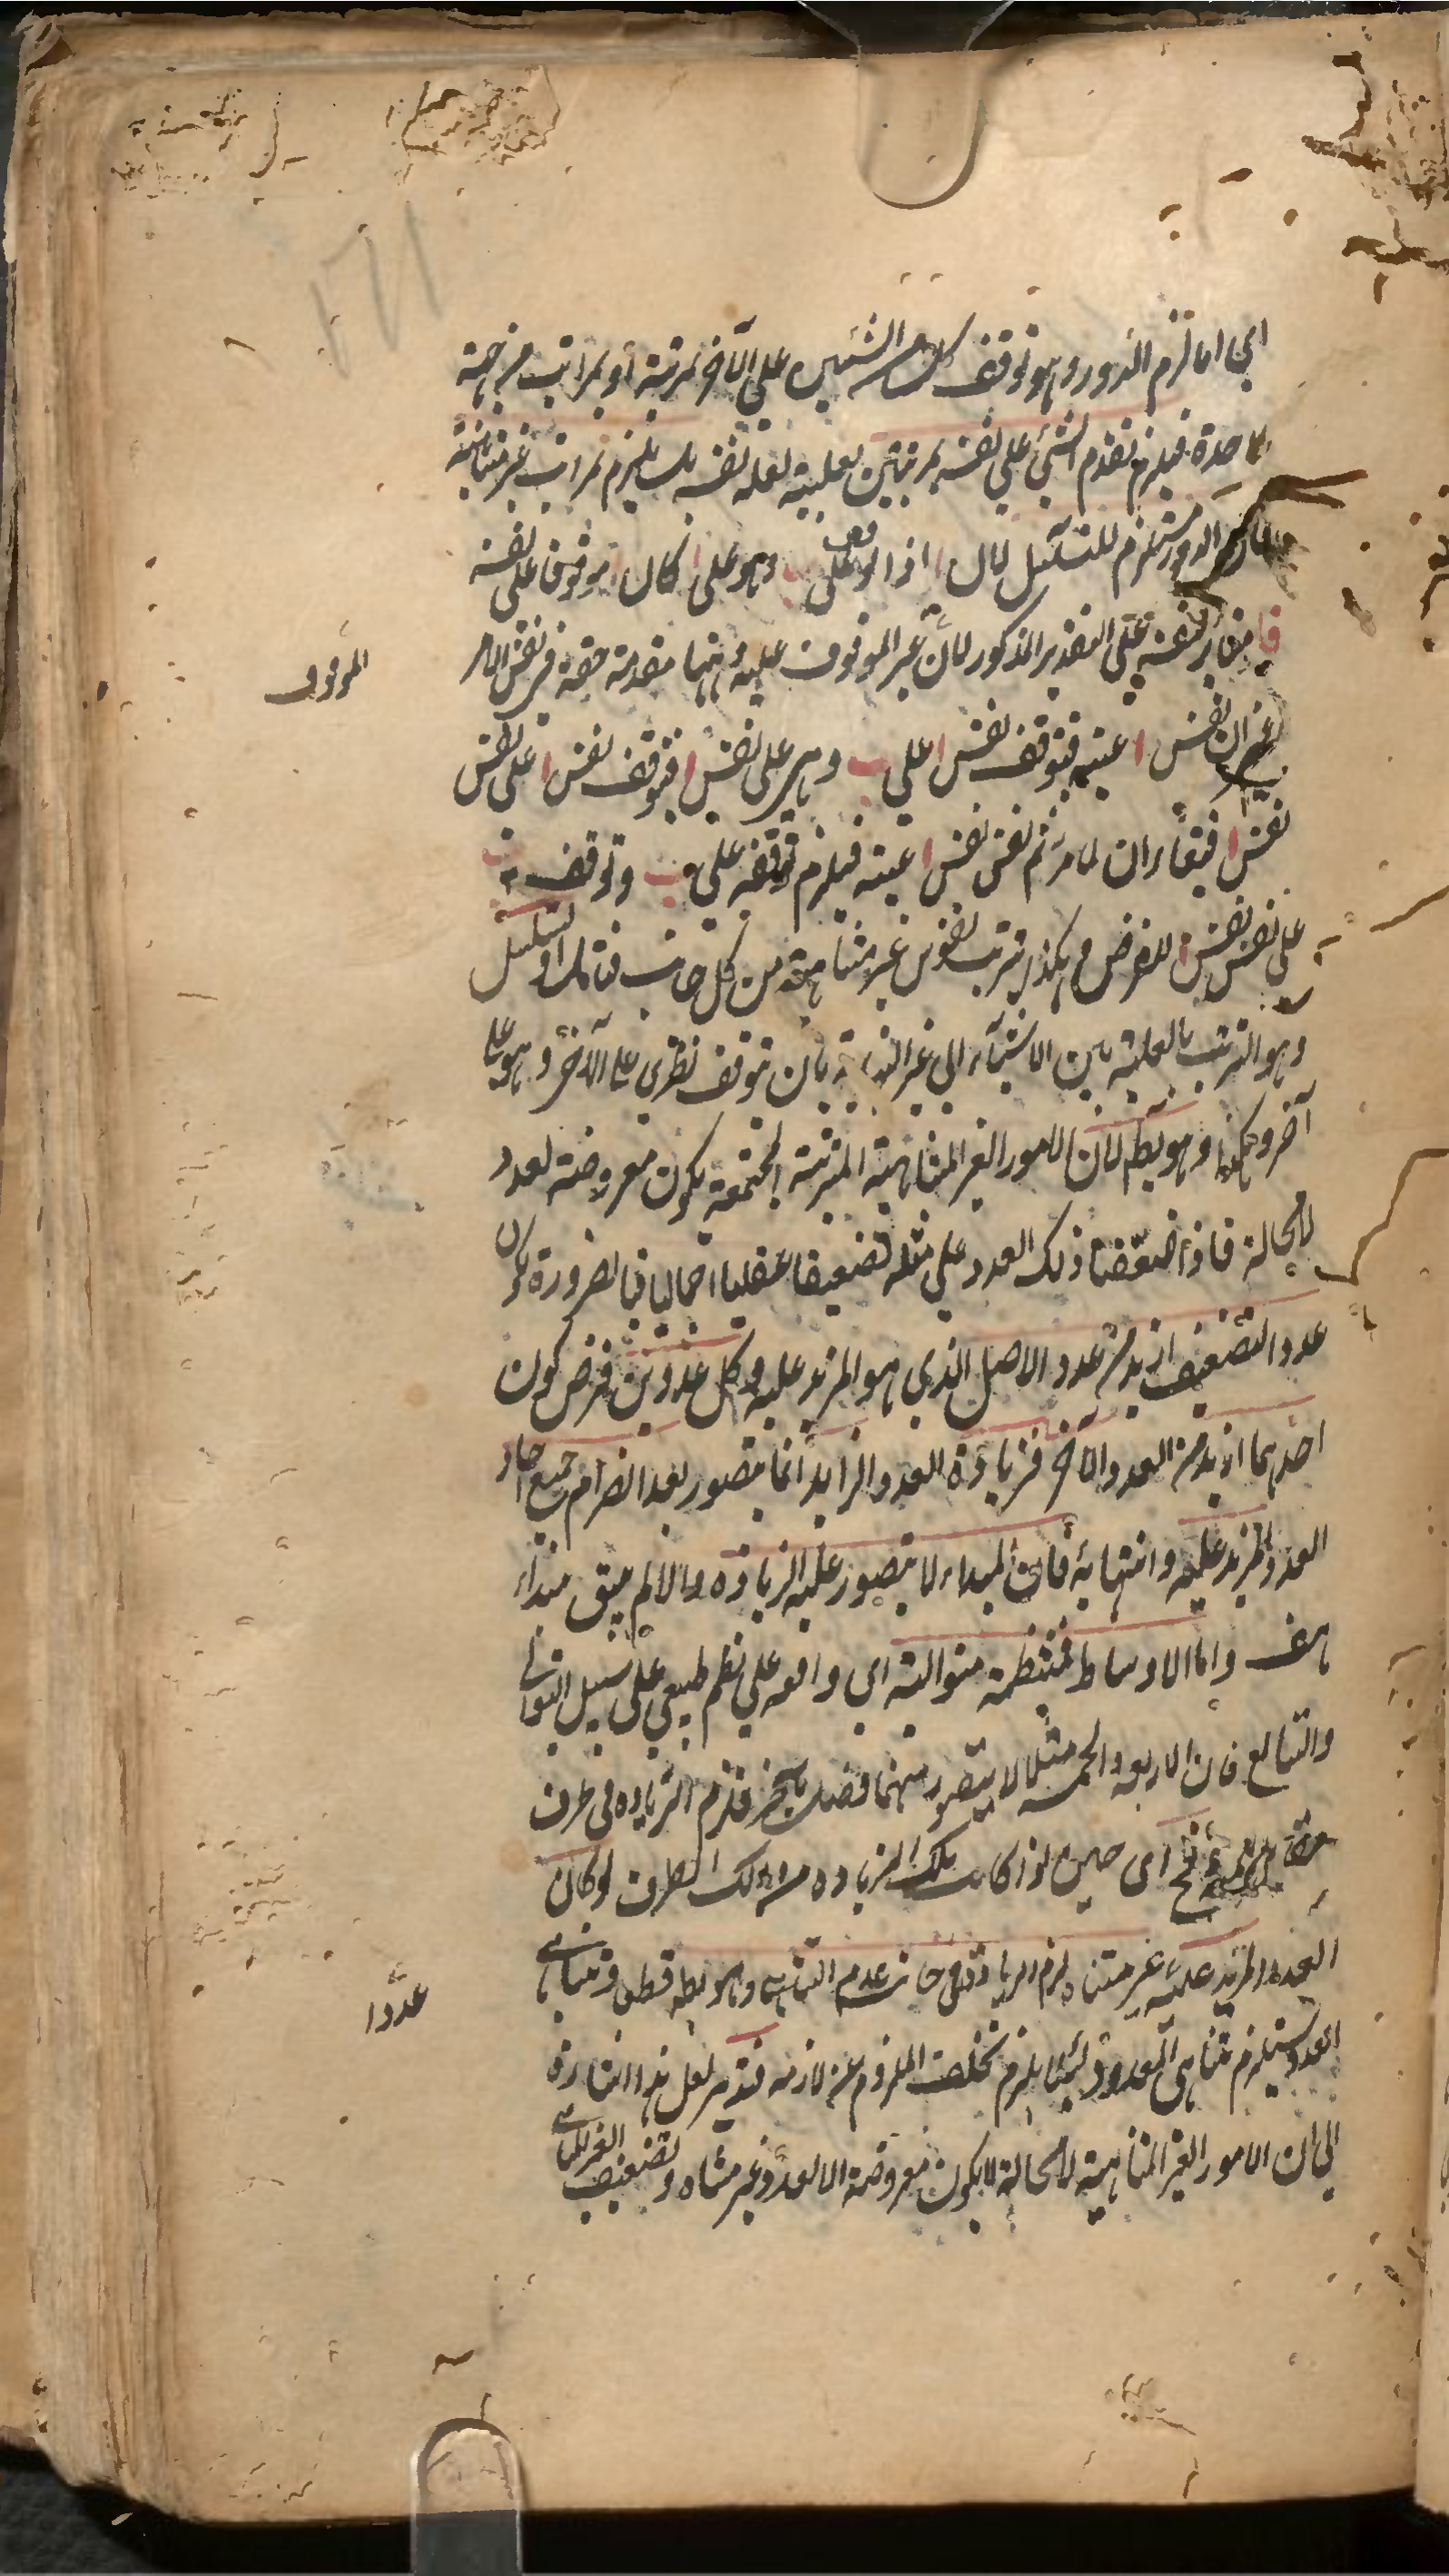 اى اما لزم الدور وهو توقف كل من الشيئين على الآخر بمرتبة او بمراتب من جهة
واحدة فيلزم تقدم الشئ على نفسه بمرتبتين بعلية لعلة نفسه بل يلزم بمراتب غير متناهية
الدور مستلزم للتسلسل لان ا اذا توقف على ب وهو على ا كان ا موقوفا على نفسه
فا مغاير لنفسه على التقدير المذكور لان غير الموقوف عليه وههنا مقدمة حقة فى نفس الامر
الموقوف
ان نفس ا عينه فتوقف نفس ا على ب وهى على نفس ا فتوقف نفس ا على نفس
نفس ا فيتغايران لما مر ثم نفس نفس ا عينه فيلزم توقفه على ب وتوقف ب
على نفس نفس ا للفرض وهكذا يترتب نفوس غير متناهية من كل جانب فتأمل او لتسلسل
وهو الترتب بالعلية بين الاشياء الى غير النهاية بان توقف نظرى على الآخر وهو على
آخر وهكذا وهو بط لان الامور الغير المتناهية المترتبة المجتمعة يكون معروضة لعدد
لامحالة فاذا ضعفنا ذلك العدد على مثله تضعيفا عقليا اجماليا فبالضرورة يكون
عدد التضعيف ازيد من عدد الاصل الذى هو المزيد عليه وكل عددين فرض كون
احدهما ازيد من العدد الآخر فزيادة العدد الزايد انما يتصور بعد انصرام جميع احاد
العدد المزيد عليه وانتهائه فان المبداء لا يتصور عليه الزيادة والا لم يبق مبداء
هف واما الاوساط فمنتظمة متوالية اى واقعه على نظم طبيعى على سبيل التوالى
والتتابع فان الاربعه والخمسه مثلا لا يتصور بينهما فصل بآخر فلزم الزياده فى طرف
فح اى حين اذا كانت تلك الزياده من ذلك الطرف لو كان
العدد المزيد عليه غير متناه لزم الزيادة فى جانب عدم التناهى وهو بط قطعا وتناهى
عددا
العدد يستلزم تناهى المعدود لئلا يلزم تخلف الملزوم عن لازمه فتدبر لعل هذا اشارة
الى ان الامور الغير المتناهية لامحالة لا يكون معروضة الا لعدد غير متناه وتضعيف الغير المتناهى